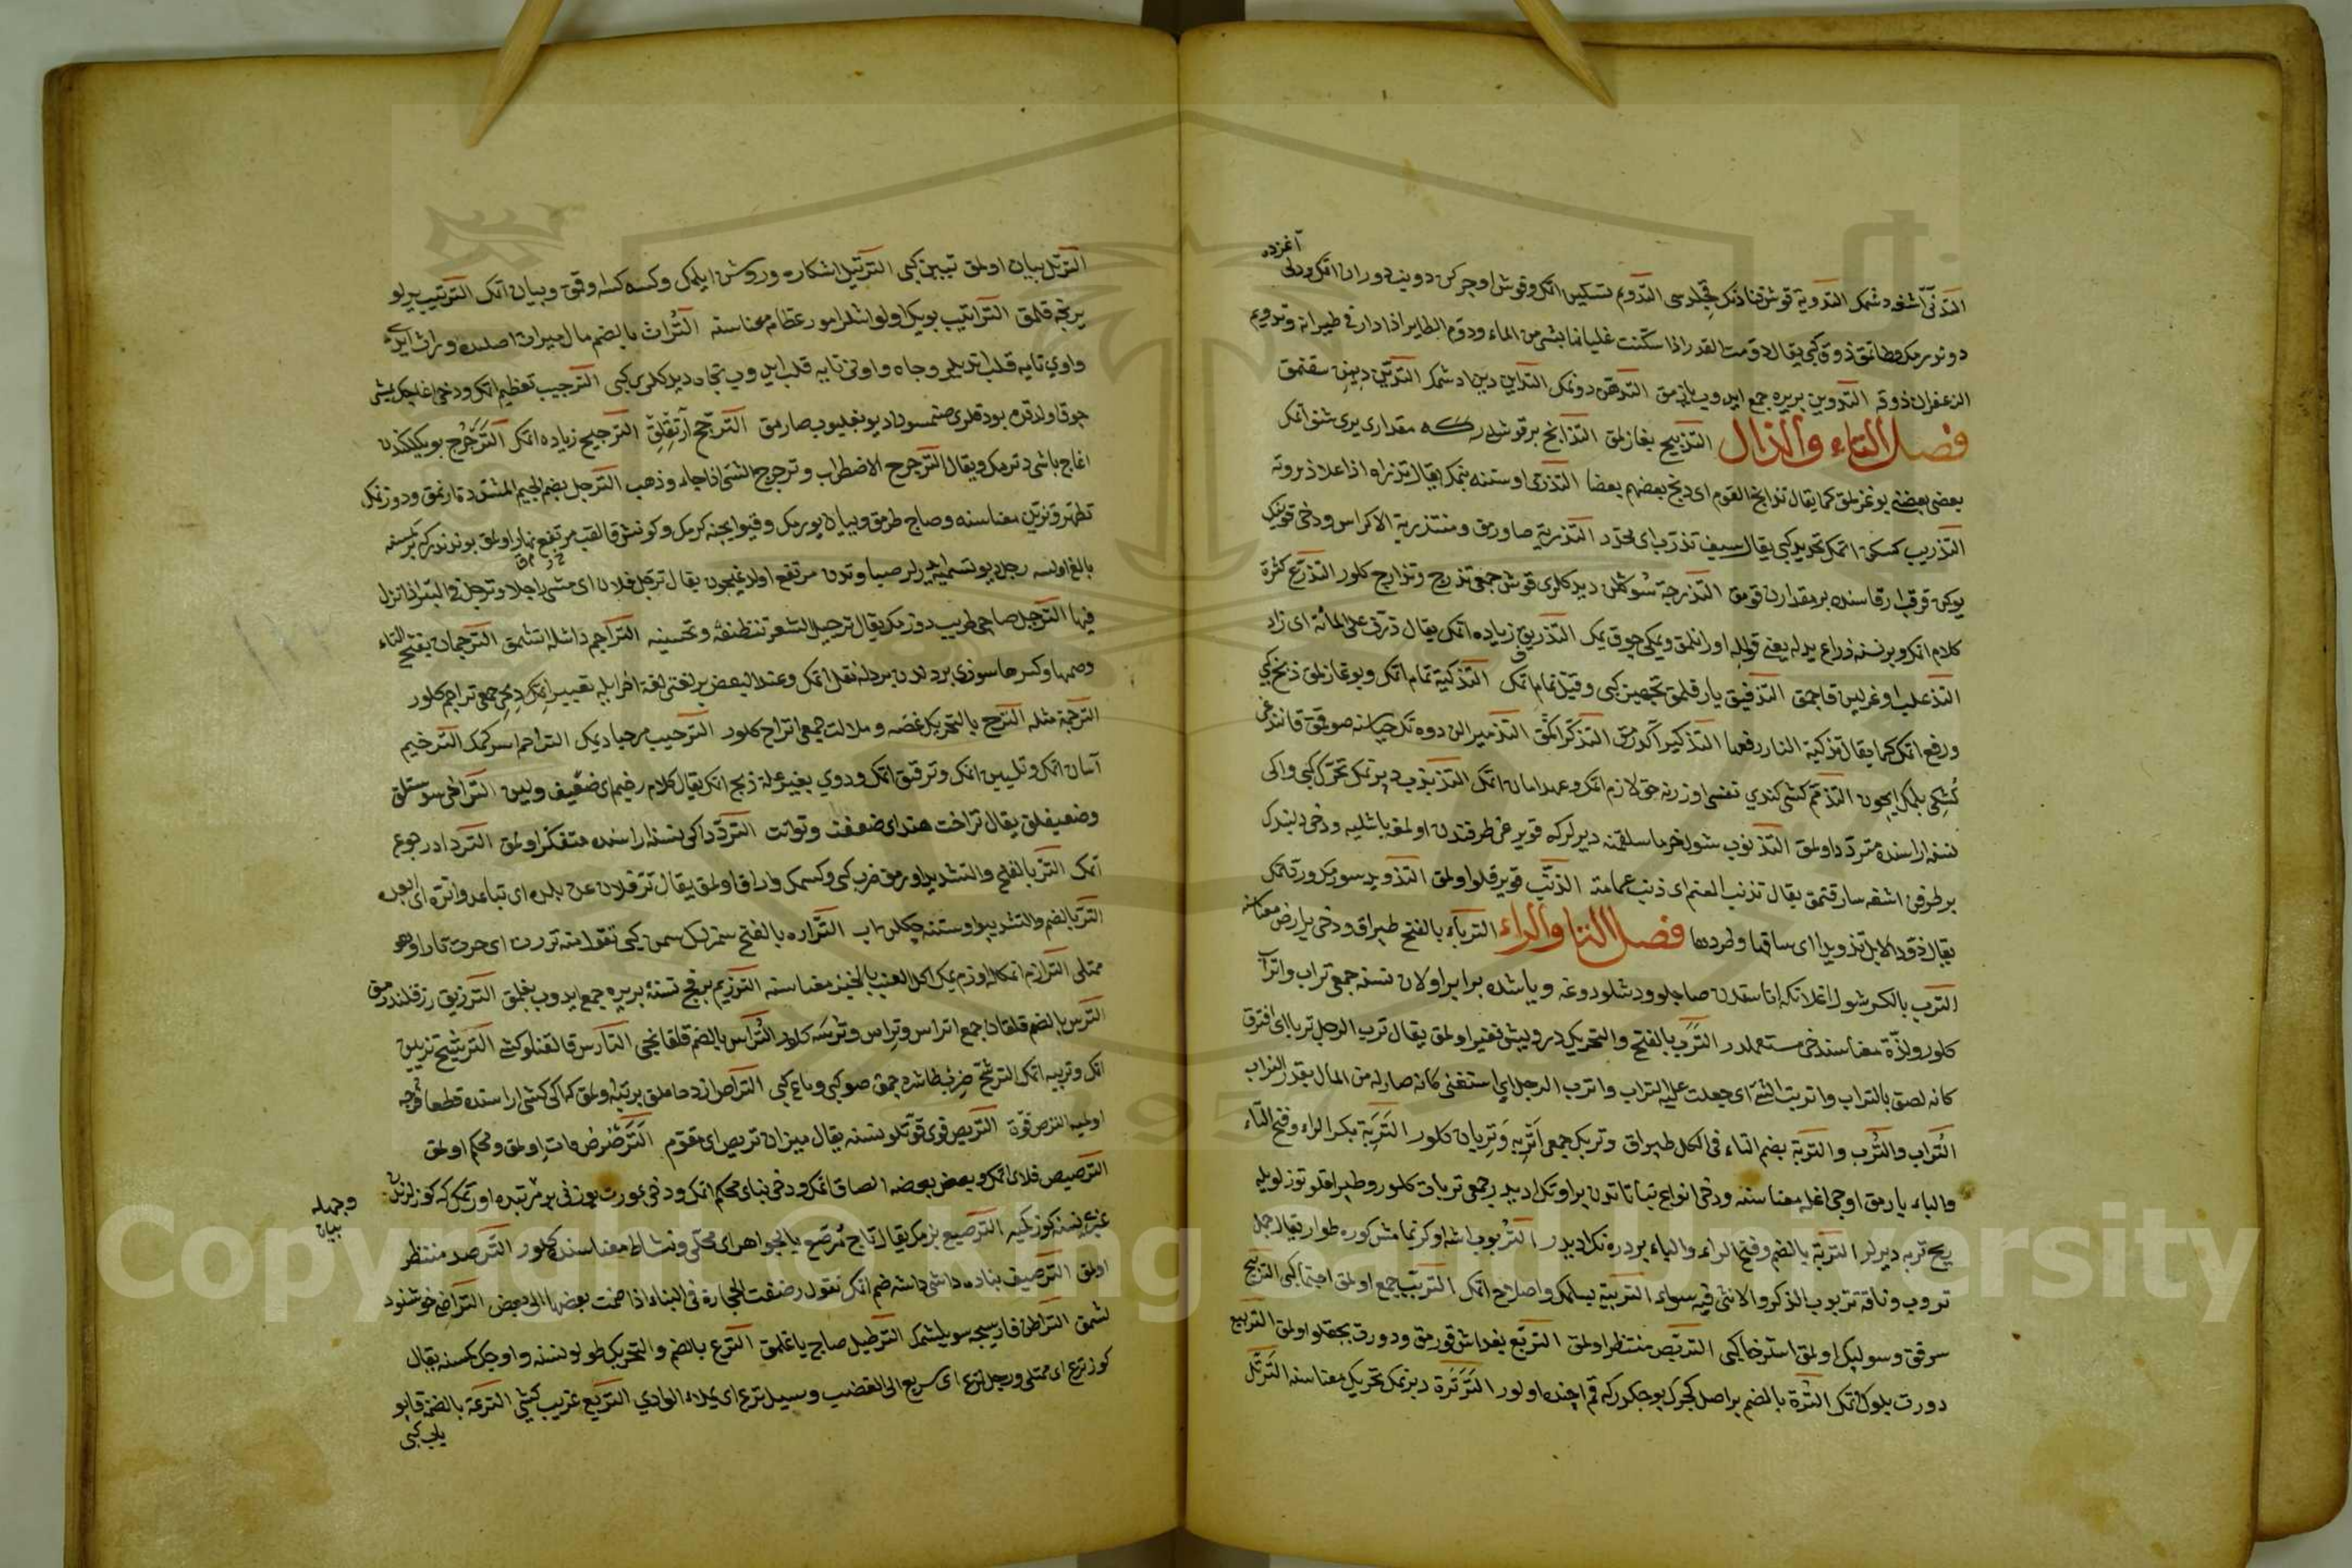 آغزده
التدنى آشغه دشمك التدوية قوش قنادنك قجلدسى التدويم تسكين اتمك وقوش اوچركن دونيب دوران اتمك ودلى
دوندرمك وطاتمق ذوق كبى يقال دومت القدر اذا سكنت غليانها بشى من الماء ودوم الطاير اذا دار فى طيرانه وتدويم
الزعفران ذوقه التدوين بريره جمع ايدوب يازمق التدهن دونمك التداين دين ادشمك التدثين
فصل التاء والذال التذبيح بغازلمق التذابح برقوشدر مقدارى يرى شق اتمك
بعضى بعضنى بوغزلمق كما يقال تذابح القوم اى ذبح بعضهم بعضا التذرى اوستنه بنمك يقال تذراه اذا علا ذروته
التذريب كسكن اتمك تحديد كبى يقال سيف تذرب اى محدد التذرية صاورمق ومنه تذرية الاكداس ودخى قويونك
يوكن قرقب ارقاسنده بر مقدار قومق التذرجة سوكلن ديدكلرى قوش جمعى تذرج وتذارج كلور التذرع كثرة
كلام اتمك وبر نسنه ذراع يدله يعنى قولله اورانلمق ويمكى چوق يمك التذريف زياده اتمك يقال ذرف على المائة اى زاد
التذعلب اوغرلين قاچمق التذفيق يارقلمق تجهيز كبى وقتل تمام اتمك التذكية تمام اتمك وبوغازلمق ذبح كبى
ورفع اتمك كما يقال تذكية النار رفعها التذكير آكدرمق التذكر اكمق التذمير الن دوه نك حياسنه صوقق قانندغى
كشيكى بلمك ايچون التذمم كشى كندى نفسى اوزرنه حق لازم اتمك وعهد امان اتمك التذبذب ديرنمك تحرك كبى واكى
نسنه اراسنده متردد اولمق التذنوب شول خرما سلقمنه ديرلركه قويرغى طرفندن اولمغه باشليه ودخى دلبندك
بر طرفن اشغه سارقتمق يقال تذنب المعتم اى ذنب عمامته الذنب قويرقلو اولمق التذويد سورمك ورد قتمك
يقال ذود الابل تذويدا اى ساقها وطردها فصل التا والراء الترباء بالفتح طپراق ودخى ير ارض معناسنه
الترب بالكسر شول اغلانكه اناسندن صاچلو ودشلو دوغه وياشده برابر اولان نسنه جمعى تراب واتراب
كلور ولدة معناسنده خى مستعملدر الترب بالفتح والتحريك درويش فقير اولمق يقال ترب الرجل تربا اى افتقر
كانه لصق بالتراب واتربت الشئ اى جعلت عليه التراب واترب الرجل اى استغنى كانه صار له من المال بقدر التراب
التراب والترب والتربة بضم التاء فى الكل طپراق وتربك جمعى اتربه وتربان كلور التربة بكسر الراء وفتح التاء
والباء يارمق اوجى اغله معناسنه ودخى انواع نباتاتدن بر اوتك اديدر جمعى تربات كلور وطپراقلو توزلو يله
ريح تربه ديرلر التربة بالضم وفتح الراء والباء بر دره نك اديدر التربوب اشه اوكرنمامش كوره طوار يقال جمل
تربوب وناقة تربوب الذكر والانثى فيه سواء التربية بسلمك واصلاح اتمك التربب جمع اولمق اجتماع كبى التربخ
سرقق وسولپك اولمق استرخا كبى التربص منتظر اولمق التربع بغداش قورمق ودورت بجقلو اولمق التربيع
دورت بلوك اتمك الترة بالضم بر اصل كجرك بوجكدركه قم اچنده اولور الترترة ديرنمك تحريك معناسنه الترتل
الترتل بيان اولمق تبين كبى الترتيل اشكاره وروشن ايلمك وكسه كسه اوقمق وبيان اتمك الترتيب ير لو
يرنجه قلمق التراتيب بويك اولو اشلر امور عظام معناسنه التراث بالضم مال ميراث اصلنده وراث ايدى
واوى تايه قلب اتديلر وجاه واونى تايه قلب ايدوب تجاه ديدكلرى كبى الترجيب تعظيم اتمك ودخى اغاجك يمشى
چوق اولد قدن بودقلرى صنمسون ديو بغليوب صارمق الترجح آرتقلق الترجيح زياده اتمك الترجرح بويكلكدن
اغاج باشى دترمك ويقال الترجرح الاضطراب وترجرح الشئ اذا جاء وذهب الترجل بضم الجيم المشدده ارنمق ودوزنمك
تطهر وتزين معناسنه وصاج طرمق وبيان يورمك وقيو ايچنه كرمك وكونش قالقب مرتفع نهار اولمق بوندندركه بر كسنه
بالغ اولسه رجل ديو تسميه ايدرلر صباوتدن مرتفع اولدغيچون يقال ترجل فلان اى مشى راجلا وترجل فى البئر اذا نزل
فيها الترجل صاچى طريب دوزمك يقال ترجيل الشعر تنظيفه وتحسينه التراجم داشله اتشمق الترجمان بفتح التاء
وضمها وكسرها سوزى بر دلدن بر دله نقل اتمك وعند البعض بر لغتى لغة اخرايله تعبير اتمك ديمك جمعى تراجم كلور
الترجمة مثله الترح بالتحريك غصه وملالت جمعى اتراح كلور الترحيب مرحبا ديمك التراحم اسركمك الترخيم
آسان اتمك وتليين اتمك وترقيق اتمك ودوى بغير علة ذبح اتمك يقال كلام رخيم اى ضعيف ولين التراخى سستلك
وضعيفلق يقال تراخت هند اى ضعفت وتوانت التردد اكى نسنه اراسنده متفكر اولمق الترداد رجوع
اتمك التر بالفتح والتشديد اورمق ضرب كبى وكسمك واراق اولمق يقال تر فلان عن بلده اى تباعد واتره اى ابعده
التر بالضم والتشديد يواوستنه چكلن اب التراره بالفتح سمزلك سمن كبى تقول منه تررت اى صرت تارا وهو
ممتلى الترازم اتمكله اوزم يمك اكل العنب بالخبز معناسنه الترزيم برقج نسنه بريره جمع ايدوب بغلمق الترزيق رزقلندرمق
الترس بالضم قلقان جمع اتراس وتراس وترسه كلور التراس بالضم قلقانجى التارس قالقنلو كشى الترشيح تزيين
اتمك وتربيه اتمك الترشح طاشره چقمق صو كبى وياغ كبى التراص ازدحاملق بر يتلو اولمق كه اكى كشى اراسنده قطعا فرجه
اولميه الترص قوة التريص قوى قوتلو نسنه يقال ميزان تريص اى مقوم الترضرض مات اولمق ومحكم اولمق
الترصيص قلاى اتمك وبعض بعضه الصاق اتمك ودخى بناى محكم اتمك ودخى عورت يوزنى بر مرتبه اورتمك كه كوزلرندن
غيرى نسنه كوزكميه الترصيع بزمك يقال تاج مرصع بالجواهر اى محلى ونشاط معناسنده كلور الترصد منتظر
وجمله
بيان
اولمق الترصيف بناده داشى داشه ضم اتمك تقول رصفت الحجارة فى البناء اذا ضمت بعضها الى بعض التراضى خوشنود
لشمق التراطن فارسيجه سويلشمك الترطيل صاچ ياغلمق الترع بالضم والتحريك طولو نسنه واوجك كسنه يقال
كوز ترع اى ممتلى ورجل ترع اى سريع الى الغضب وسيل ترع اى يملاء الوادى التريع غريب كشى الترعة بالضم قاپو
ياب كبى